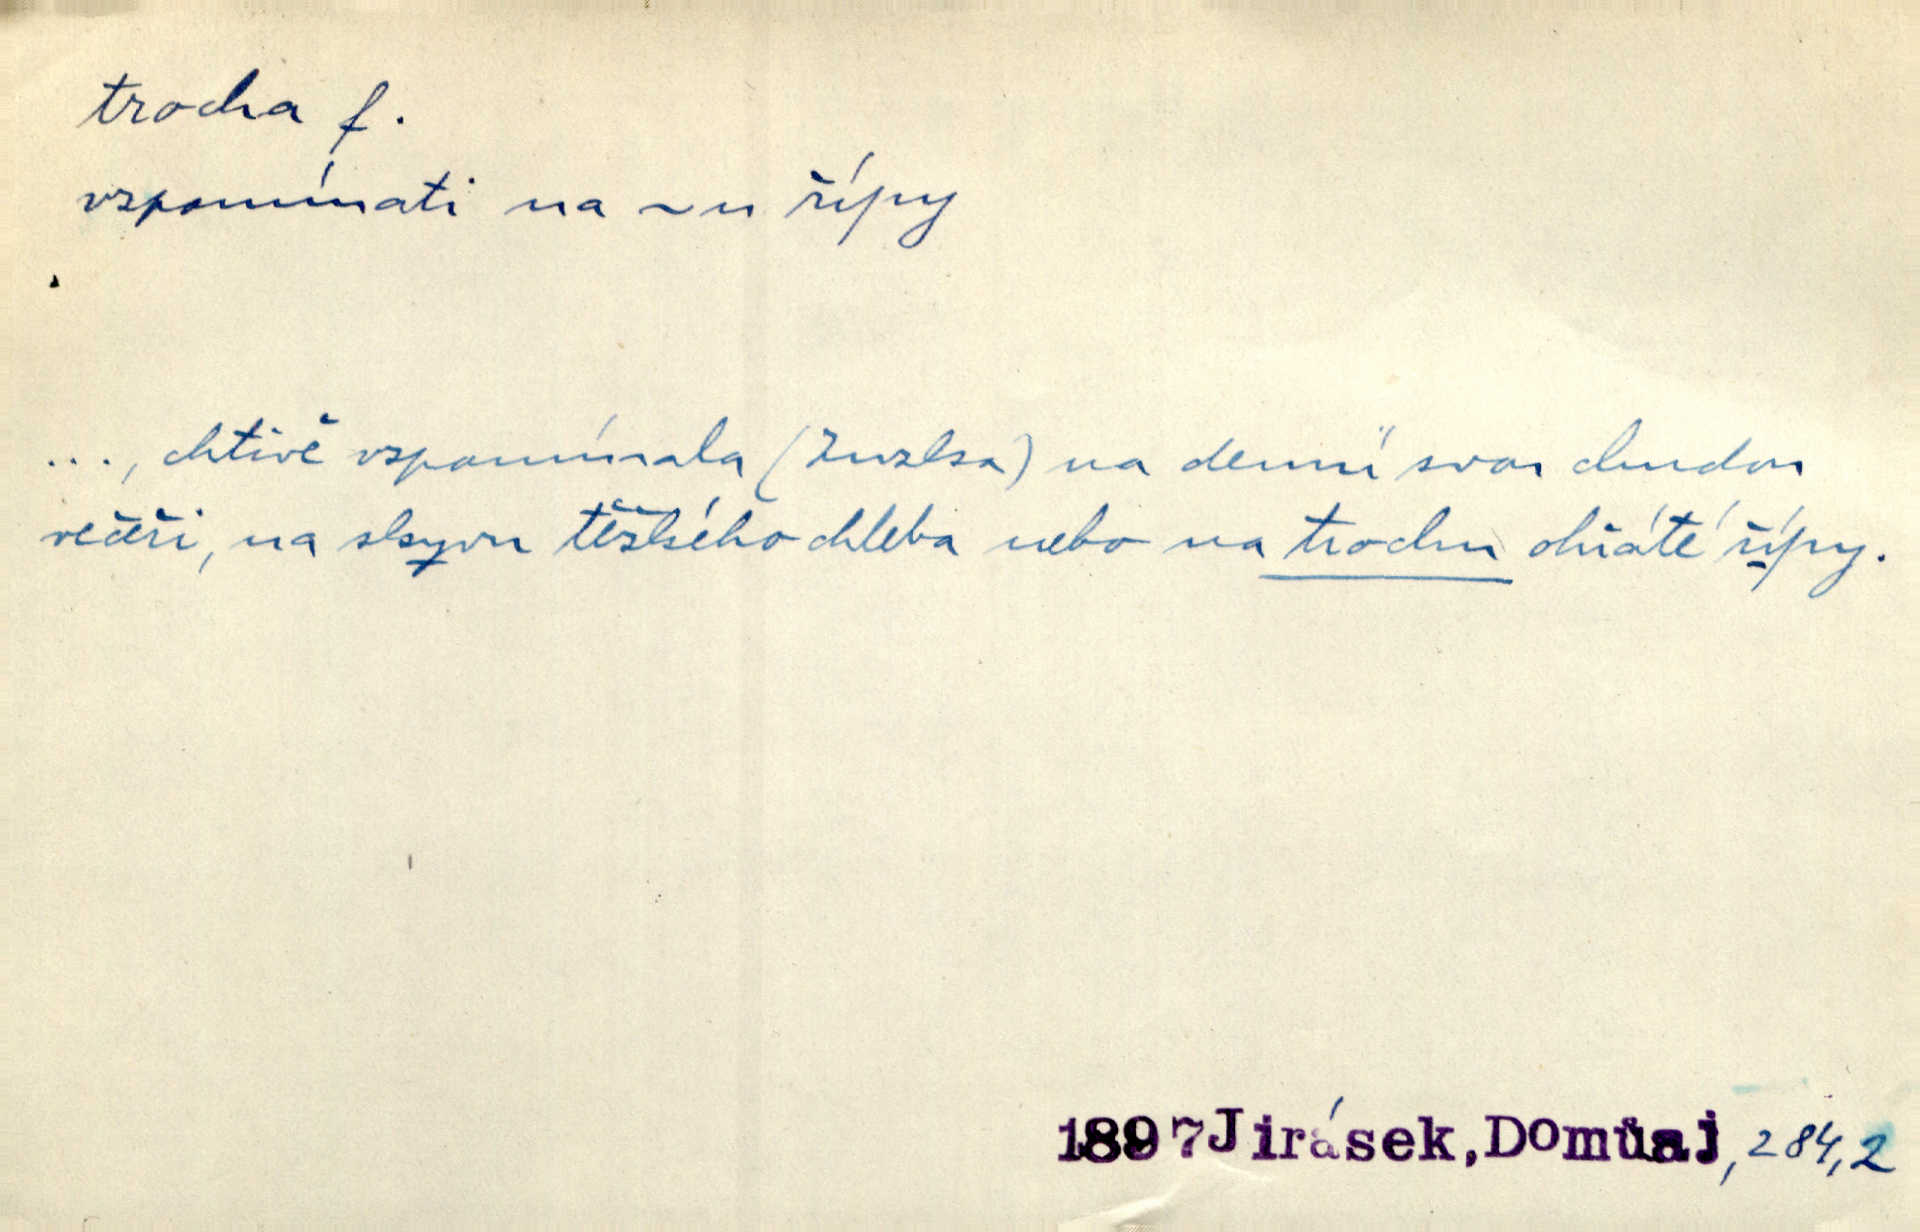 trocha f.
vzpomínati na ~u řípy
..., chtivě vzpomínala (Zuzka) na denní svou chudou
večeři, na skyvu těžkého chleba nebo na trochu ohřáté řípy.
1897 Jirásek, Domů aj, 284,2